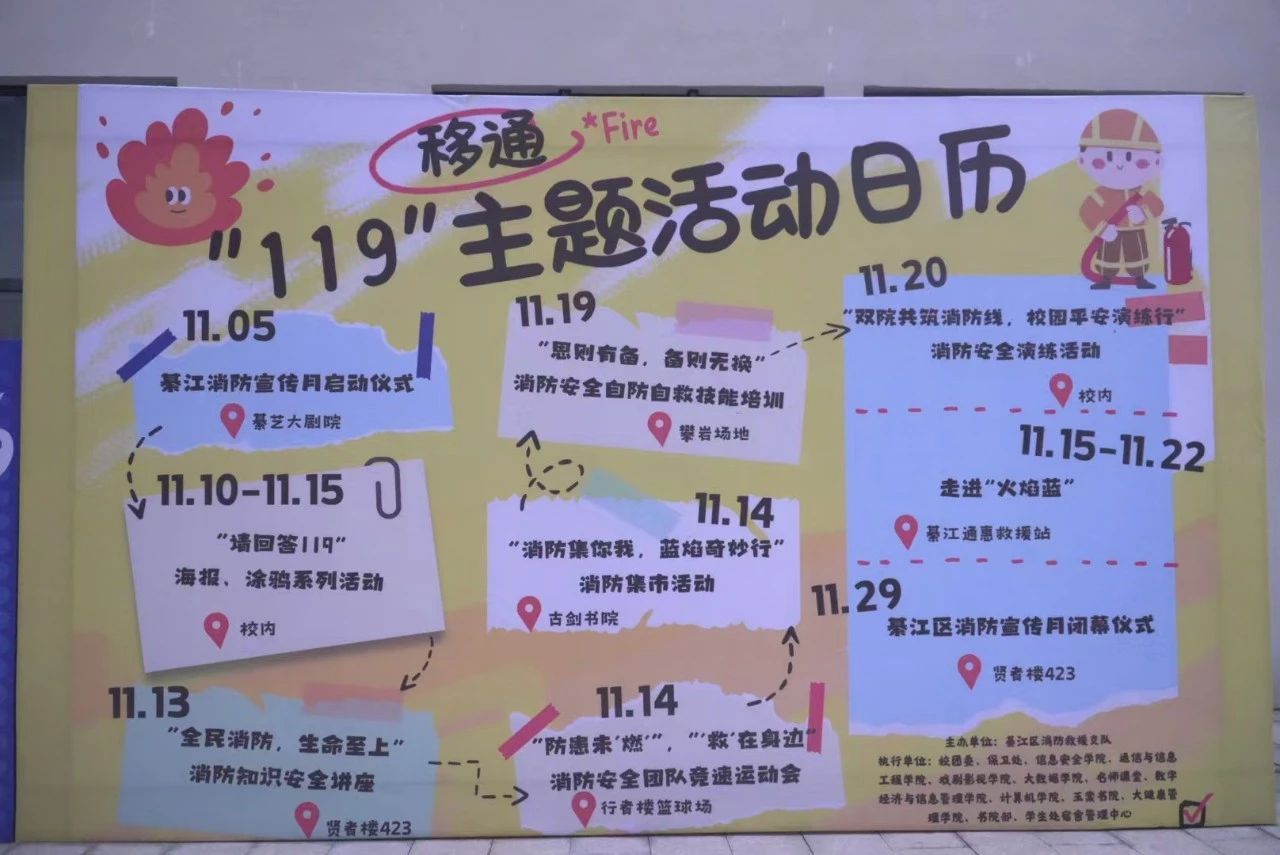 移通
*Fire
"119"主题活动日历
11.05
綦江消防宣传月启动仪式
綦艺大剧院
11.10-11.15
"请回答119"
海报、涂鸦系列活动
校内
11.13
"全民消防，生命至上"
消防知识安全讲座
贤者楼423
11.14
"防患未'燃'"，"'救'在身边"
消防安全团队竞速运动会
行者楼篮球场
11.14
"消防集你我，蓝焰奇妙行"
消防集市活动
古剑书院
11.19
"思则有备，备则无换"
消防安全自防自救技能培训
攀岩场地
11.20
"双院共筑消防线，校园平安演练行"
消防安全演练活动
校内
11.15-11.22
走进"火焰蓝"
綦江通惠救援站
11.29
綦江区消防宣传月闭幕仪式
贤者楼423
主办单位：綦江区消防救援支队
执行单位：校团委、保卫处、信息安全学院、通信与信息
工程学院、戏剧影视学院、大数据学院、名师课堂、数字
经济与信息管理学院、计算机学院、玉棠书院、大健康管
理学院、书院部、学生处宿舍管理中心